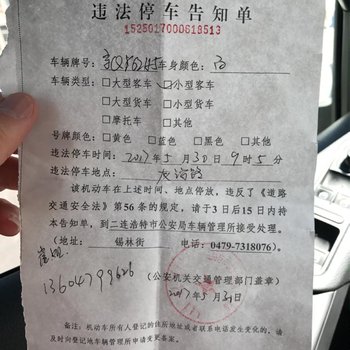 违法停车告知单
1525017000618513
车辆牌号： 车身颜色：白
车辆类型：□大型客车 □小型客车
□大型货车 □小型货车
□摩托车 □其他
号牌颜色：□黄色 □蓝色 □黑色 □其他
违法停车时间：2017年5月30日9时5分
违法停车地点：
该机动车在上述时间、地点停放，违反了《道路
交通安全法》第56条的规定，请于3日后15日内持
本告知单，到二连浩特市公安局车辆管理所接受处理。
（地址： 锡林街 电话：0479-7318076）。
13604799626
（公安机关交通管理部门盖章）
2017年5月31日
备注：机动车所有人登记的住所地址或者联系电话发生变化的，请
及时向登记地车辆管理所申请变更备案。